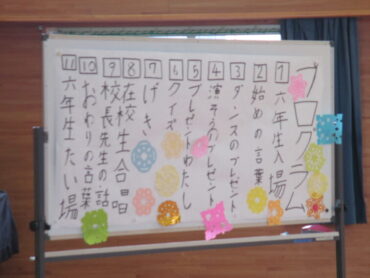 プログラム
1 六年生入場
2 始めの言葉
3 ダンスのプレゼント
4 演そうのプレゼント
5 プレゼントわたし
6 クイズ
7 げき
8 在校生合唱
9 校長先生の話
10 おわりの言葉
11 六年生たい場